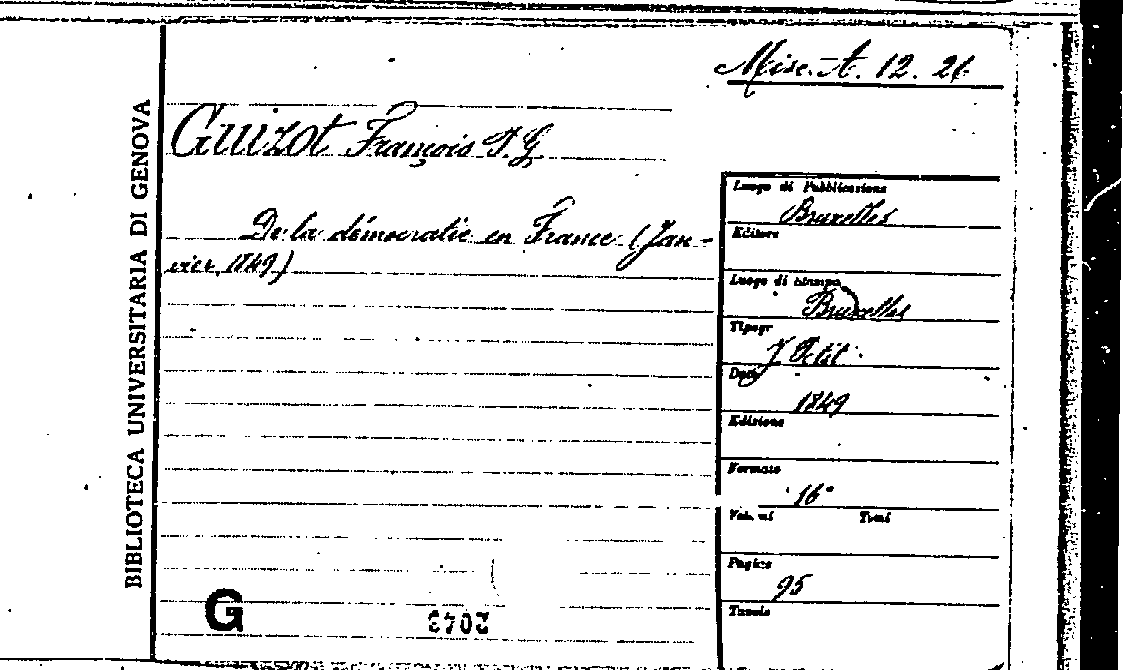 Misc. A. 12. 26
Guizot François P. G.
De la démocratie en France (Jan-
vier 1849)
BIBLIOTECA UNIVERSITARIA DI GENOVA
Luogo di Pubblicazione
Bruxelles
Editore
Luogo di stampa
Bruxelles
Tipogr
J Petit
Data
1849
Edizione
Formato
16°
Volumi Tomi
Pagine
95
Tavole
G